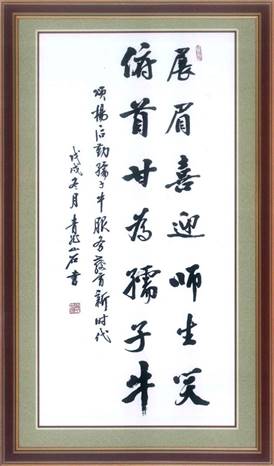 展眉喜迎师生笑
俯首甘为孺子牛
颂杨后勤孺子牛服务教育新时代
戊戌冬月青龙山石书